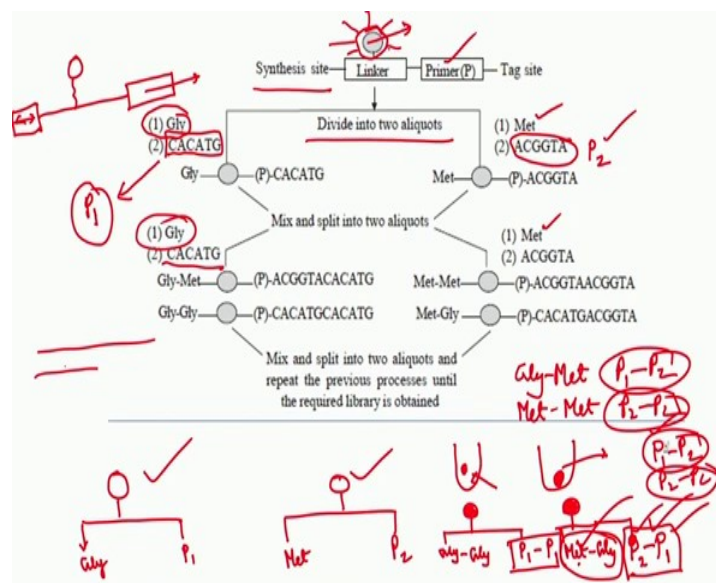 Synthesis site — Linker — Primer(P) — Tag site
Divide into two aliquots
(1) Gly
(2) CACATG
(1) Met
(2) ACGGTA
P2
P1
Gly—(P)-CACATG
Met—(P)-ACGGTA
Mix and split into two aliquots
(1) Gly
(2) CACATG
(1) Met
(2) ACGGTA
Gly-Met—(P)-ACGGTACACATG
Met-Met—(P)-ACGGTAACGGTA
Gly-Gly—(P)-CACATGCACATG
Met-Gly—(P)-CACATGACGGTA
Mix and split into two aliquots and
repeat the previous processes until
the required library is obtained
Gly-Met P1-P2
Met-Met P2-P2
P1-P2
P2-P2
Gly P1
Met P2
Gly-Gly P1-P1
Met-Gly P2-P1